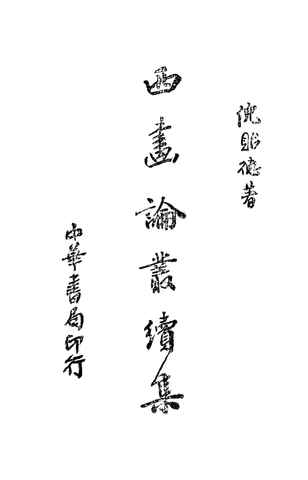 倪貽德著
西畫論叢續集
中華書局印行